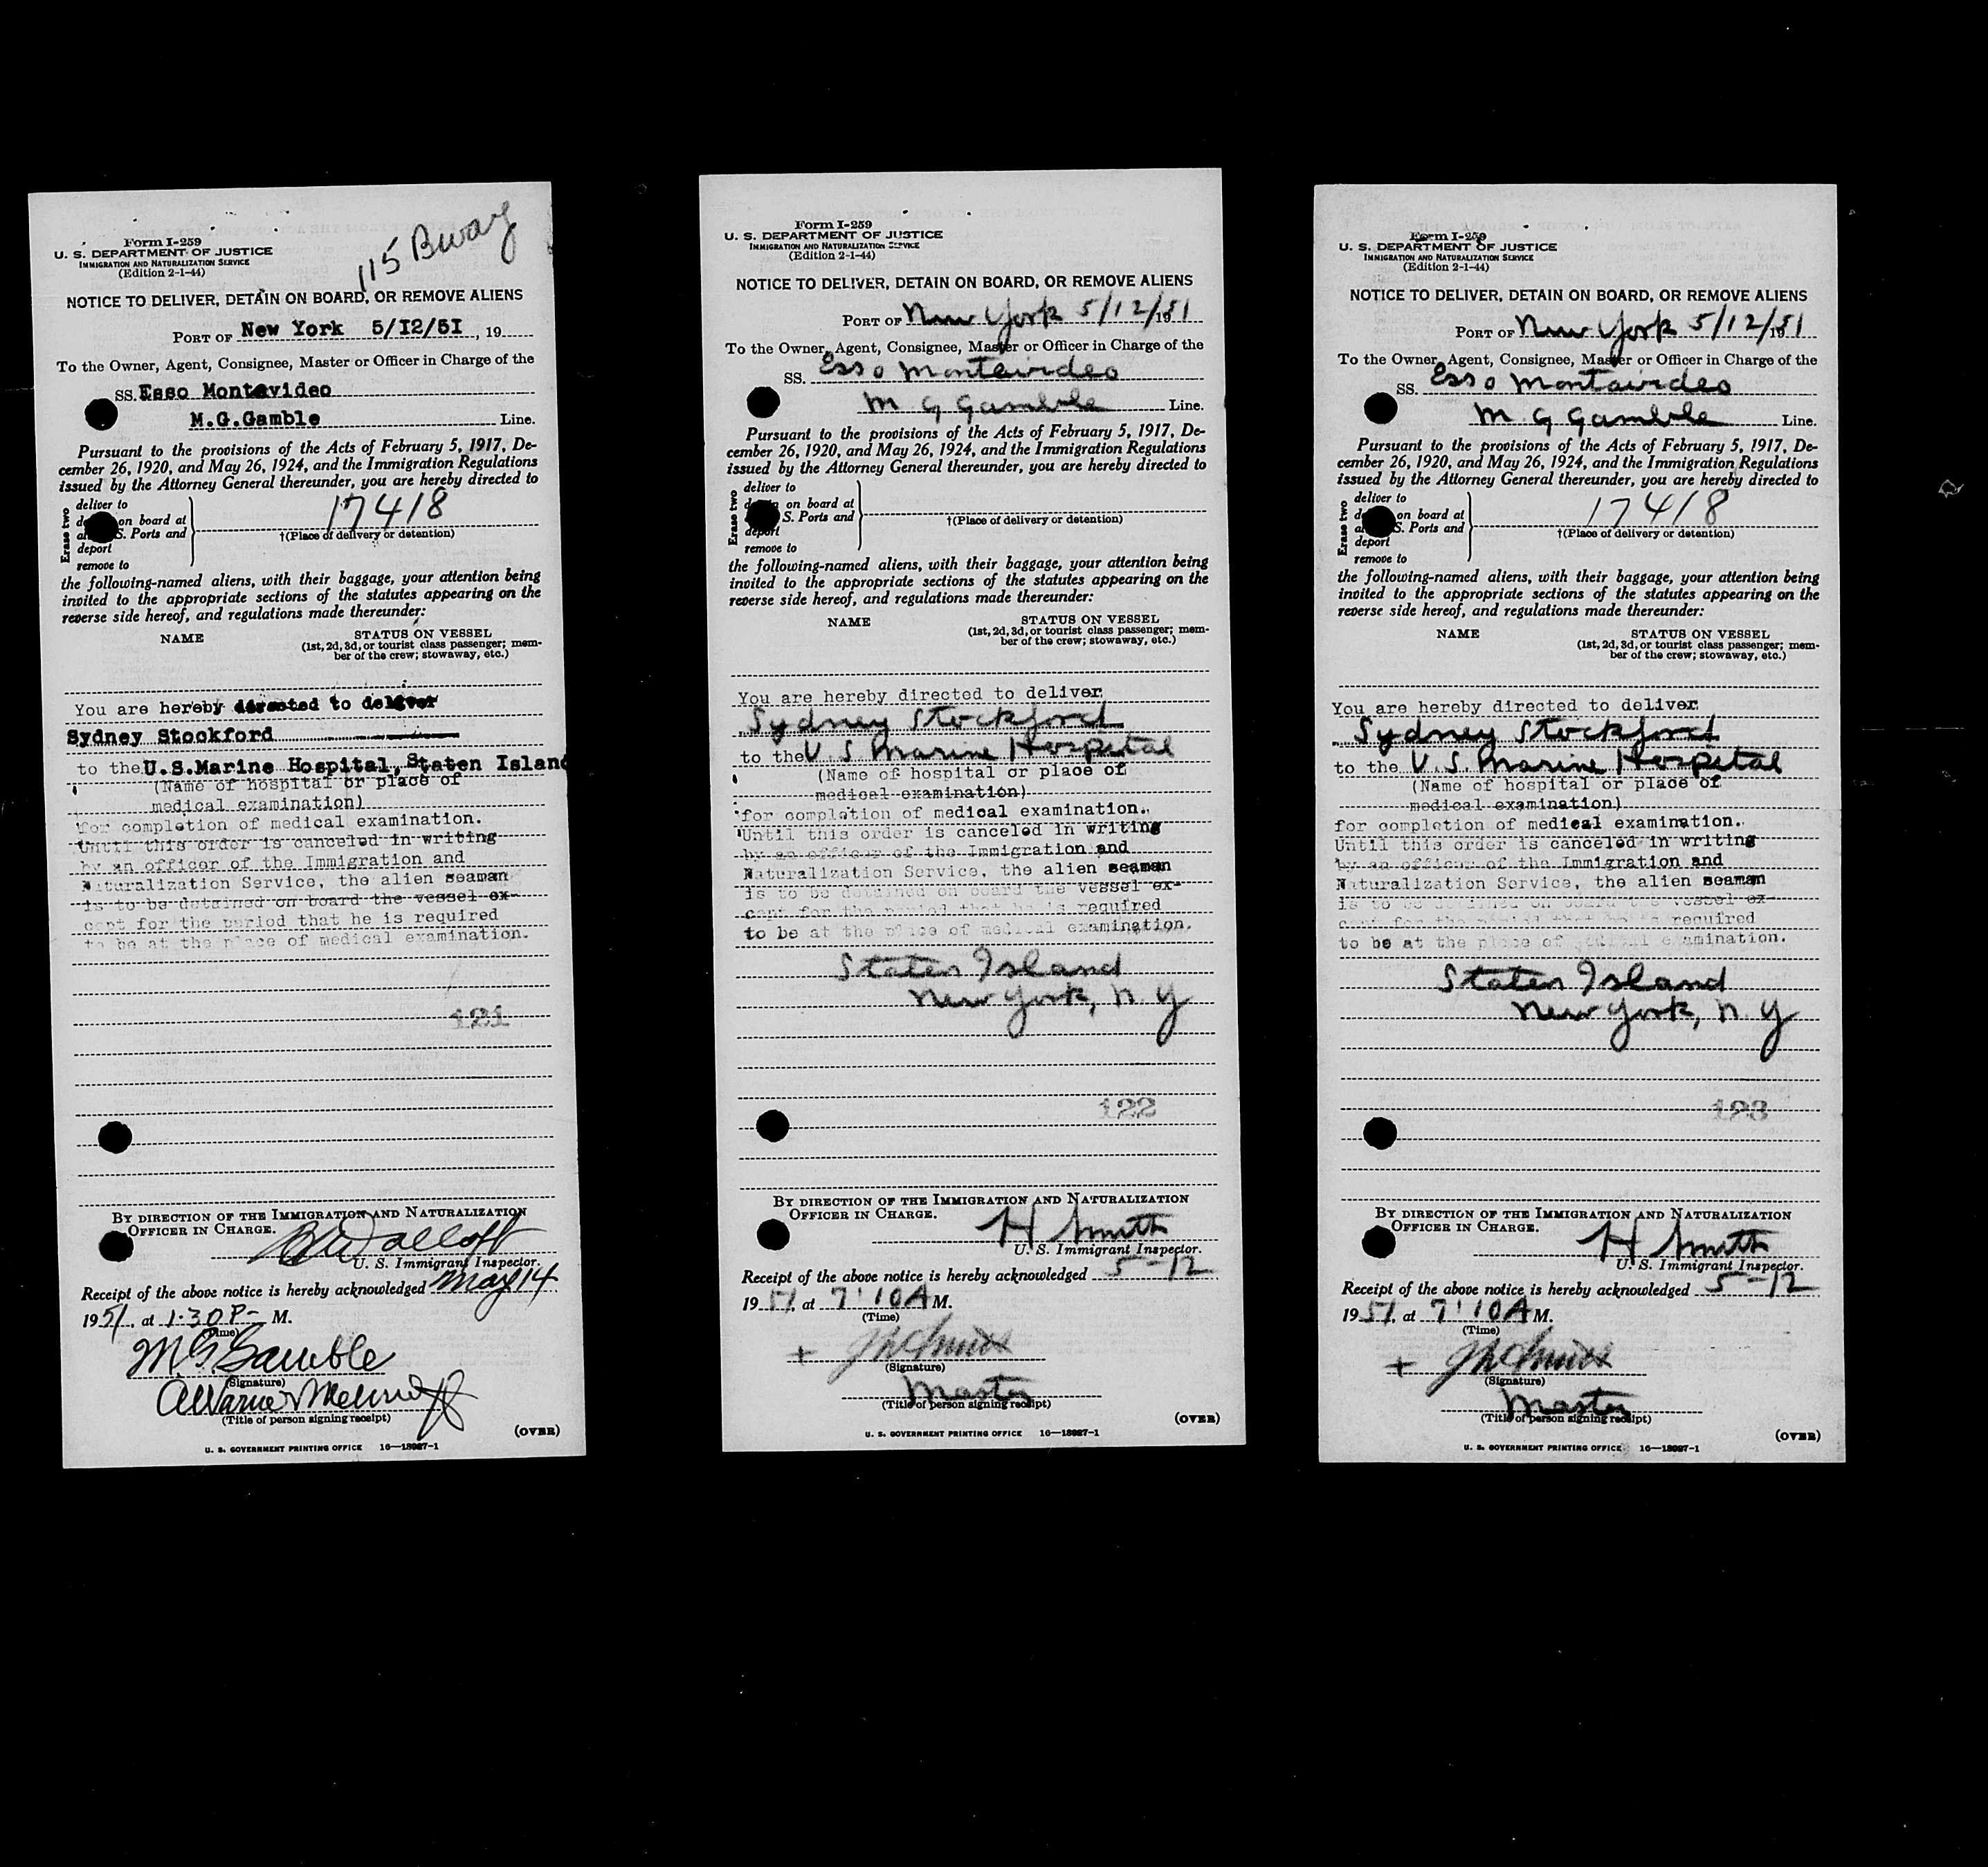 115 Bway
Form I-259
U. S. DEPARTMENT OF JUSTICE
IMMIGRATION AND NATURALIZATION SERVICE
(Edition 2-1-44)
NOTICE TO DELIVER, DETAIN ON BOARD, OR REMOVE ALIENS
PORT OF New York 5/12/51, 19
To the Owner, Agent, Consignee, Master or Officer in Charge of the
SS. Esso Montevideo
M.G.Gamble Line.
Pursuant to the provisions of the Acts of February 5, 1917, De-
cember 26, 1920, and May 26, 1924, and the Immigration Regulations
issued by the Attorney General thereunder, you are hereby directed to
Erase two
deliver to
on board at 17418
S. Ports and †(Place of delivery or detention)
deport
remove to
the following-named aliens, with their baggage, your attention being
invited to the appropriate sections of the statutes appearing on the
reverse side hereof, and regulations made thereunder:
NAME STATUS ON VESSEL
(1st, 2d, 3d, or tourist class passenger; mem-
ber of the crew; stowaway, etc.)
You are hereby directed to deliver
Sydney Stockford
to the U.S.Marine Hospital, Staten Island
(Name of hospital or place of
medical examination)
for completion of medical examination.
Until this order is canceled in writing
by an officer of the Immigration and
Naturalization Service, the alien seaman
is to be detained on board the vessel ex-
cept for the period that he is required
to be at the place of medical examination.
121
BY DIRECTION OF THE IMMIGRATION AND NATURALIZATION
OFFICER IN CHARGE.
U. S. Immigrant Inspector.
Receipt of the above notice is hereby acknowledged May 14
1951, at 1:30 P- M.
(Time)
M G Gamble
(Signature)
(Title of person signing receipt)
(OVER)
U. S. GOVERNMENT PRINTING OFFICE 16—18087-1
Form I-259
U. S. DEPARTMENT OF JUSTICE
IMMIGRATION AND NATURALIZATION SERVICE
(Edition 2-1-44)
NOTICE TO DELIVER, DETAIN ON BOARD, OR REMOVE ALIENS
PORT OF New York 5/12/1951
To the Owner, Agent, Consignee, Master or Officer in Charge of the
SS. Esso Montevideo
M G Gamble Line.
Pursuant to the provisions of the Acts of February 5, 1917, De-
cember 26, 1920, and May 26, 1924, and the Immigration Regulations
issued by the Attorney General thereunder, you are hereby directed to
Erase two
deliver to
on board at
S. Ports and †(Place of delivery or detention)
deport
remove to
the following-named aliens, with their baggage, your attention being
invited to the appropriate sections of the statutes appearing on the
reverse side hereof, and regulations made thereunder:
NAME STATUS ON VESSEL
(1st, 2d, 3d, or tourist class passenger; mem-
ber of the crew; stowaway, etc.)
You are hereby directed to deliver
Sydney Stockford
to the U S Marine Hospital
(Name of hospital or place of
medical examination)
for completion of medical examination.
Until this order is canceled in writing
by an officer of the Immigration and
Naturalization Service, the alien seaman
is to be detained on board the vessel ex-
cept for the period that he is required
to be at the place of medical examination.
Staten Island
New York, N. Y
122
BY DIRECTION OF THE IMMIGRATION AND NATURALIZATION
OFFICER IN CHARGE.
H Smith
U. S. Immigrant Inspector.
Receipt of the above notice is hereby acknowledged 5-12
1951, at 7:10 A M.
(Time)
+
(Signature)
Master
(Title of person signing receipt)
(OVER)
U. S. GOVERNMENT PRINTING OFFICE 16—18087-1
Form I-259
U. S. DEPARTMENT OF JUSTICE
IMMIGRATION AND NATURALIZATION SERVICE
(Edition 2-1-44)
NOTICE TO DELIVER, DETAIN ON BOARD, OR REMOVE ALIENS
PORT OF New York 5/12/1951
To the Owner, Agent, Consignee, Master or Officer in Charge of the
SS. Esso Montevideo
M G Gamble Line.
Pursuant to the provisions of the Acts of February 5, 1917, De-
cember 26, 1920, and May 26, 1924, and the Immigration Regulations
issued by the Attorney General thereunder, you are hereby directed to
Erase two
deliver to
on board at 17418
S. Ports and †(Place of delivery or detention)
deport
remove to
the following-named aliens, with their baggage, your attention being
invited to the appropriate sections of the statutes appearing on the
reverse side hereof, and regulations made thereunder:
NAME STATUS ON VESSEL
(1st, 2d, 3d, or tourist class passenger; mem-
ber of the crew; stowaway, etc.)
You are hereby directed to deliver
Sydney Stockford
to the U.S. Marine Hospital
(Name of hospital or place of
medical examination)
for completion of medical examination.
Until this order is canceled in writing
by an officer of the Immigration and
Naturalization Service, the alien seaman
is to be detained on board the vessel ex-
cept for the period that he is required
to be at the place of medical examination.
Staten Island
New York, N. Y
123
BY DIRECTION OF THE IMMIGRATION AND NATURALIZATION
OFFICER IN CHARGE.
H Smith
U. S. Immigrant Inspector.
Receipt of the above notice is hereby acknowledged 5-12
1951, at 7:10 A M.
(Time)
+
(Signature)
Master
(Title of person signing receipt)
(OVER)
U. S. GOVERNMENT PRINTING OFFICE 16—18087-1